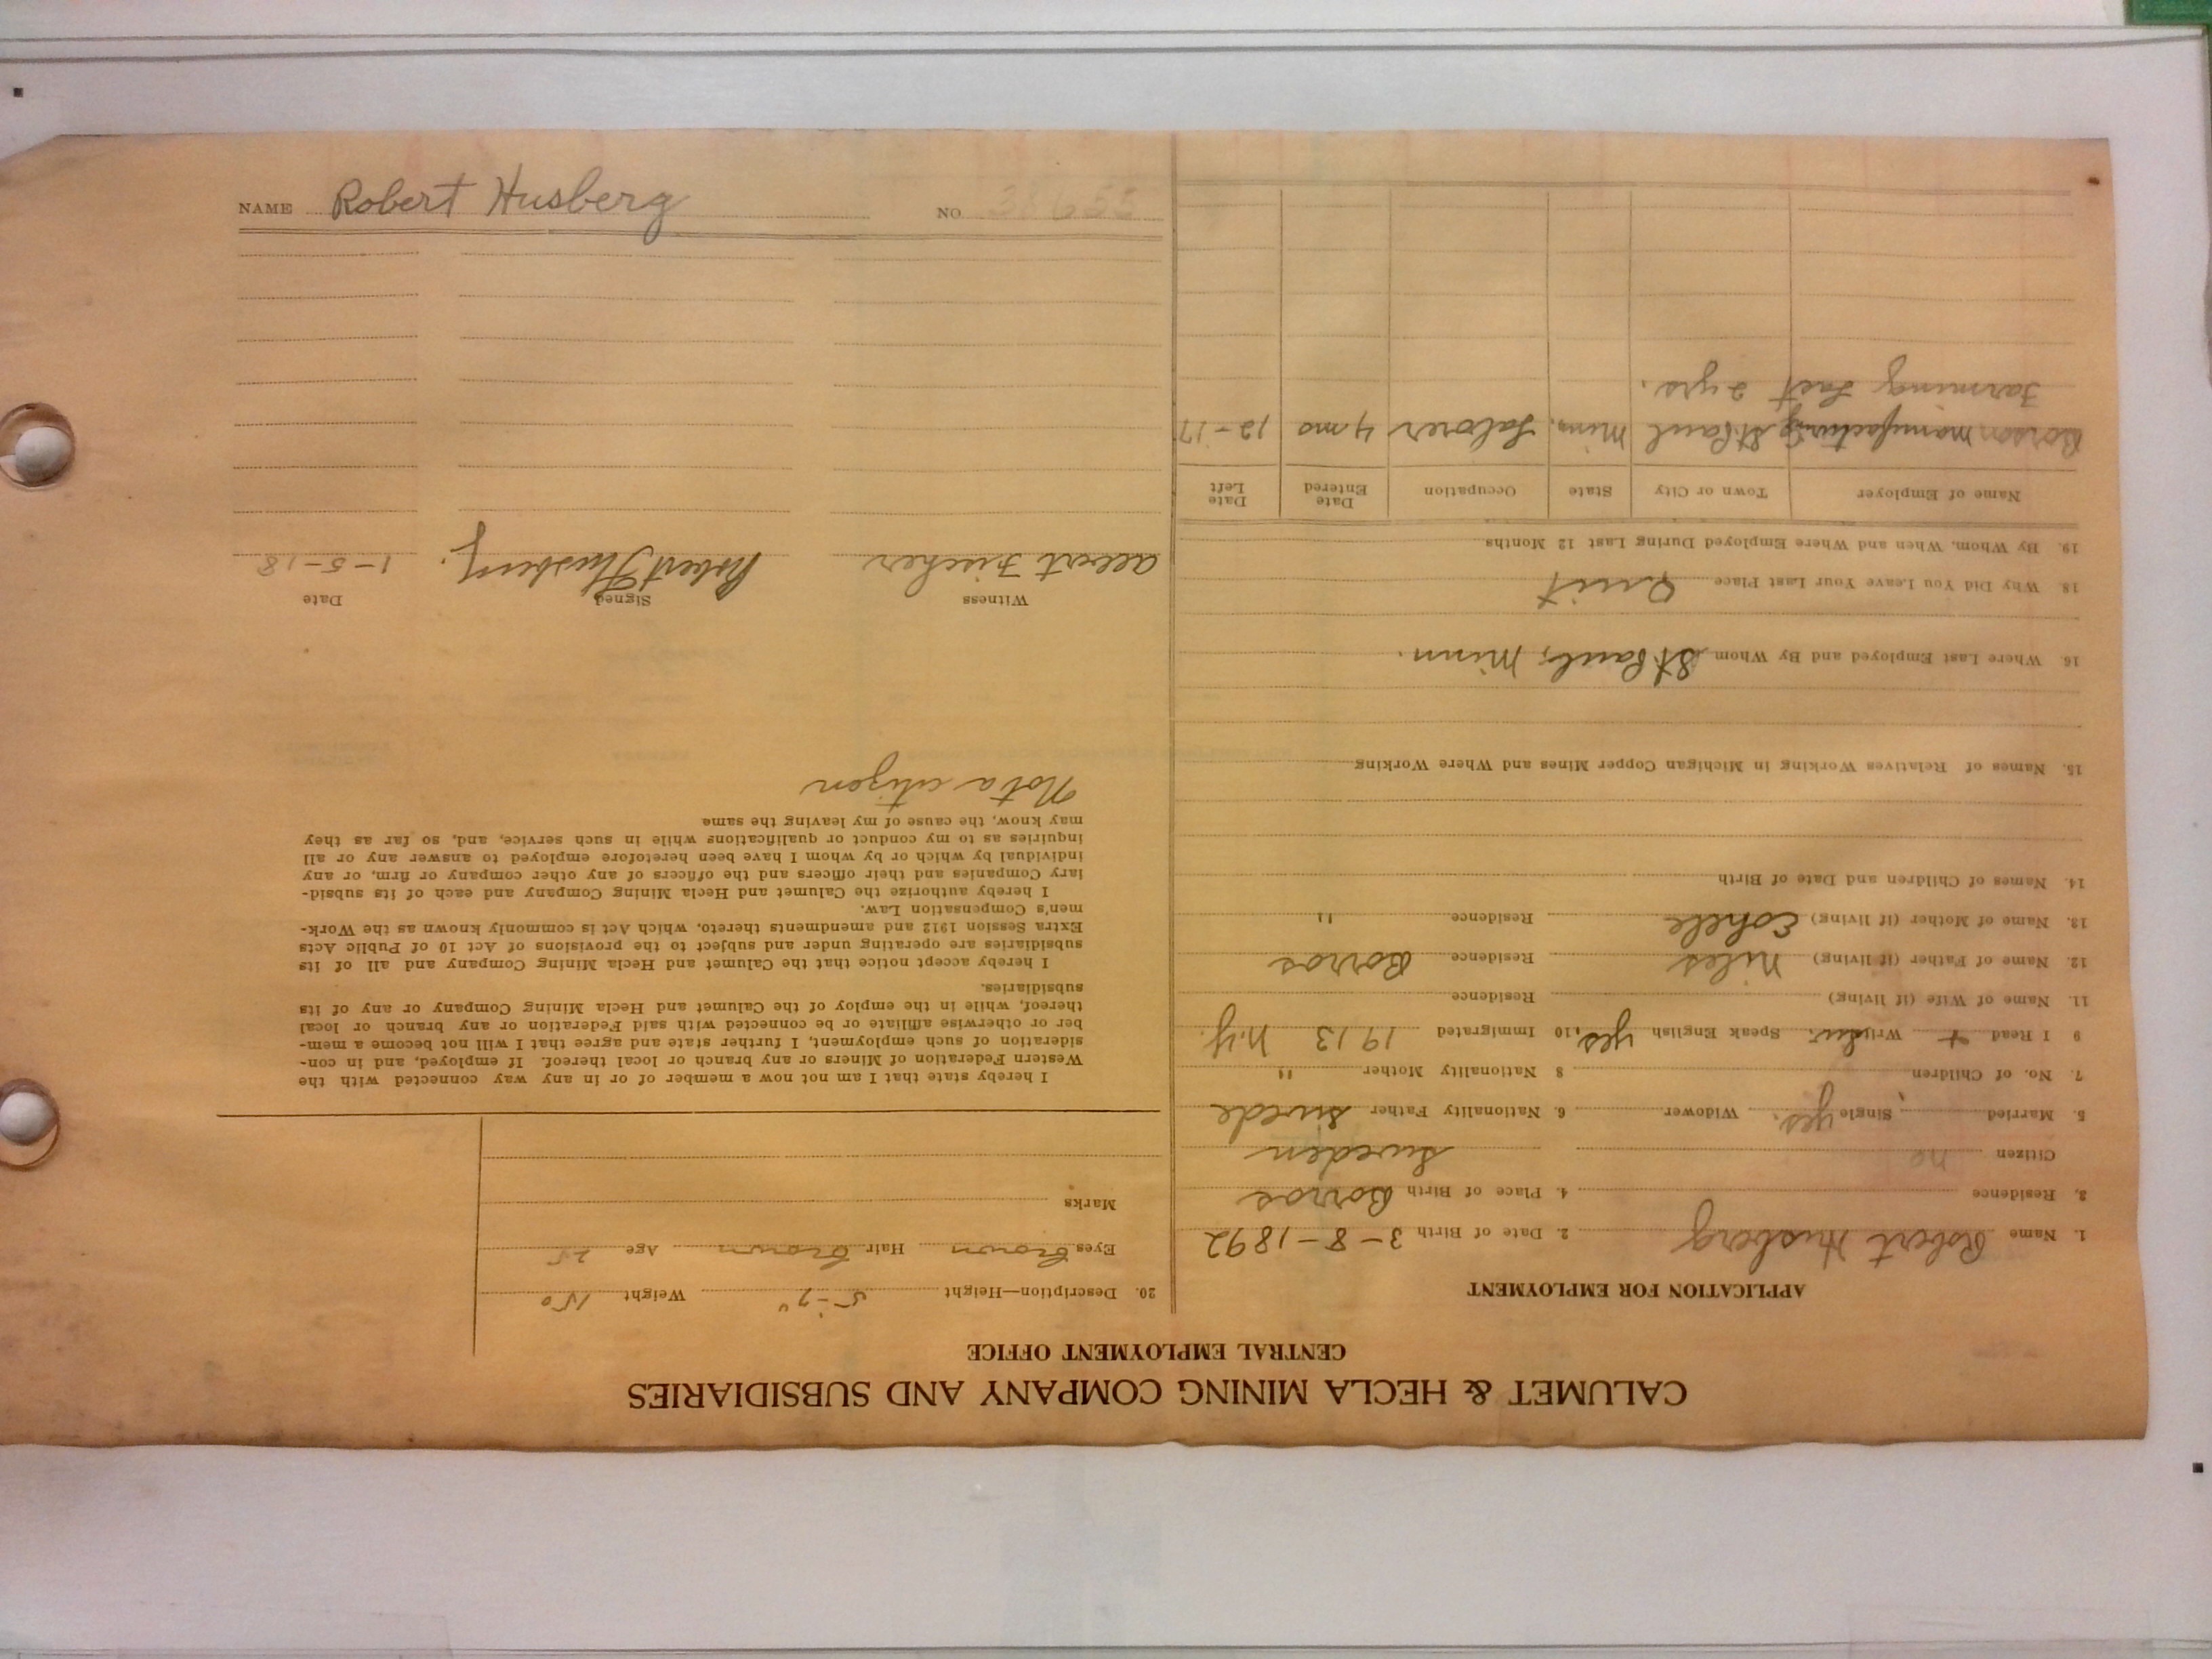 NAME Robert Husberg NO 38655
CALUMET & HECLA MINING COMPANY AND SUBSIDIARIES
CENTRAL EMPLOYMENT OFFICE
APPLICATION FOR EMPLOYMENT
1. Name Robert Husberg 2. Date of Birth 3-8-1892
3, Residence 4. Place of Birth Borros
Citizen no Sweden
5. Married Single yes. Widower 6. Nationality Father Swede
7. No. of Children 8 Nationality Mother "
9 I Read + Write Speak English yes. 10 Immigrated 1913 N.Y.
11. Name of Wife (if living) Residence
12. Name of Father (if living) Niles Residence Borros
13. Name of Mother (if living) Residence "
14. Names of Children and Date of Birth
15. Names of Relatives Working in Michigan Copper Mines and Where Working
16. Where Last Employed and By Whom St Paul, Minn.
18. Why Did You Leave Your Last Place Quit
19. By Whom, When and Where Employed During Last 12 Months
Name of Employer Town or City State Occupation Date Entered Date Left
Borson manufacturing St Paul Minn, Laborer 4 mo 12-17
Farming Last 2 yrs.
20. Description—Height 5-7" Weight 150
Eyes Brown Hair Brown Age 25
Marks
I hereby state that I am not now a member of or in any way connected with the
Western Federation of Miners or any branch or local thereof. If employed, and in con-
sideration of such employment, I further state and agree that I will not become a mem-
ber or otherwise affiliate or be connected with said Federation or any branch or local
thereof, while in the employ of the Calumet and Hecla Mining Company or any of its
subsidiaries.
I hereby accept notice that the Calumet and Hecla Mining Company and all of its
subsidiaries are operating under and subject to the provisions of Act 10 of Public Acts
Extra Session 1912 and amendments thereto, which Act is commonly known as the Work-
men's Compensation Law.
I hereby authorize the Calumet and Hecla Mining Company and each of its subsid-
iary Companies and their officers and the officers of any other company or firm, or any
individual by which or by whom I have been heretofore employed to answer any or all
inquiries as to my conduct or qualifications while in such service, and, so far as they
may know, the cause of my leaving the same
Not a citizen
Witness Signed Date
Albert Fischer Robert Husberg. 1-5-18